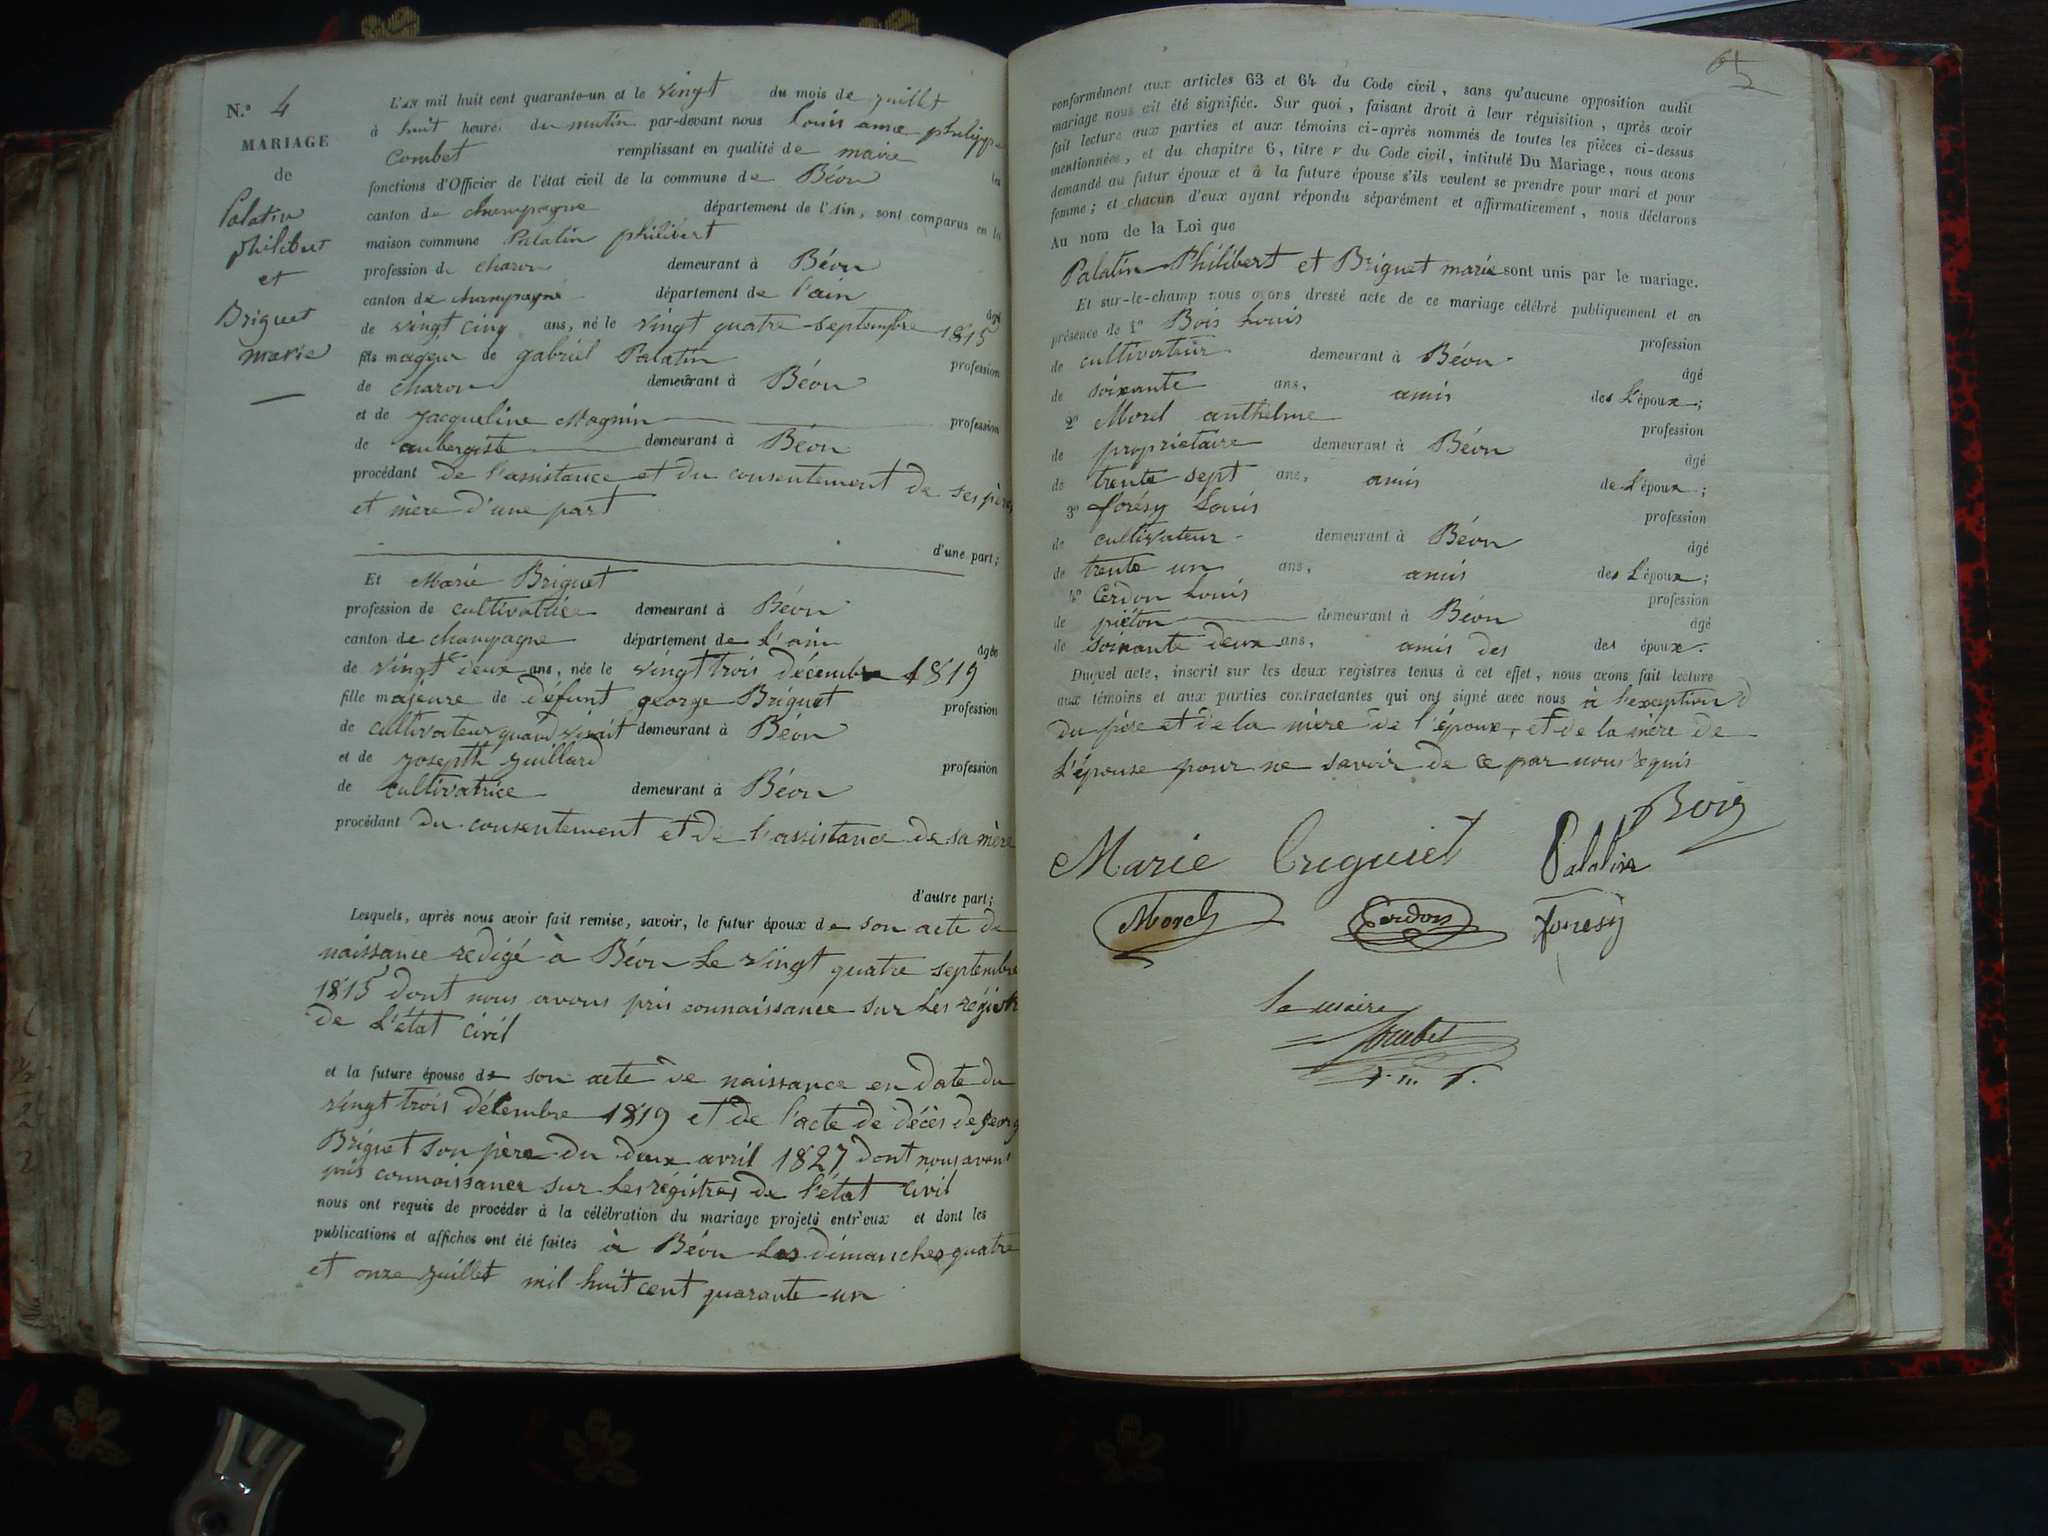 N.º 4
MARIAGE
de
Palatin
philibert
et
Briguet
marie
L'an mil huit cent quarante-un et le vingt du mois de juillet
à huit heure du matin par-devant nous Louis anne philippe
Combet remplissant en qualité de maire les
fonctions d'Officier de l'état civil de la commune de Béon
canton de champagne département de l'Ain, sont comparus en la
maison commune Palatin philibert
profession de charon demeurant à Béon
canton de champagne département de l'ain âgé
de vingt cinq ans, né le vingt quatre septembre 1815
fils mageur de gabriel Palatin profession
de charon demeurant à Béon
et de Jacqueline Magnin profession
de aubergiste demeurant à Béon
procédant de l'assistance et du consentement de ses père
et mère d'une part
d'une part;
Et Marie Briguet
profession de cultivatrice demeurant à Béon
canton de champagne département de L'ain âgée
de vingt deux ans, née le vingt trois décembre 1819
fille majeure de défunt george Briguet profession
de cultivateur quand vivait demeurant à Béon
et de Josepth juillard profession
de cultivatrice demeurant à Béon
procédant du consentement et de l'assistance de sa mère
d'autre part;
Lesquels, après nous avoir fait remise, savoir, le futur époux de son acte de
naissance redigé à Béon Le vingt quatre septembre
1815 dont nous avons pris connaissance sur Les régistr
de L'état civil
et la future épouse de son acte de naissance en date du
vingt trois décembre 1819 et de l'acte de décès de georg
Briguet son père du deux avril 1827 dont nous avons
pris connaissance sur Les régistres de l'état civil
nous ont requis de procéder à la célébration du mariage projeté entr'eux et dont les
publications et affiches ont été faites à Béon Les dimanches quatre
et onze juillet mil huit cent quarante-un
65
conformément aux articles 63 et 64 du Code civil, sans qu'aucune opposition audit
mariage nous ait été signifiée. Sur quoi, faisant droit à leur réquisition, après avoir
fait lecture aux parties et aux témoins ci-après nommés de toutes les pièces ci-dessus
mentionnées, et du chapitre 6, titre v du Code civil, intitulé Du Mariage, nous avons
demandé au futur époux et à la future épouse s'ils veulent se prendre pour mari et pour
femme; et chacun d'eux ayant répondu séparément et affirmativement, nous déclarons
Au nom de la Loi que
Palatin Philibert et Briguet marie sont unis par le mariage.
Et sur-le-champ nous avons dressé acte de ce mariage célébré publiquement et en
présence de 1º Bois Louis profession
de cultivateur demeurant à Béon âgé
de soixante ans, amis des L'époux;
2º Morel anthelme profession
de propriétaire demeurant à Béon âgé
de trente sept ans, amis de L'époux;
3º forésy Louis profession
de cultivateur demeurant à Béon âgé
de trente un ans, amis des L'époux;
4º Cerdon Louis profession
de piéton demeurant à Béon âgé
de soixante deux ans, amis des des époux.
Duquel acte, inscrit sur les deux registres tenus à cet effet, nous avons fait lecture
aux témoins et aux parties contractantes qui ont signé avec nous à l'exception
du père et de la mère de l'époux, et de la mère de
L'épouse pour ne savoir de ce par nous requis
Bois
Marie Briguiet Palatin
Morel Cerdon Foresy
Le maire
Combet